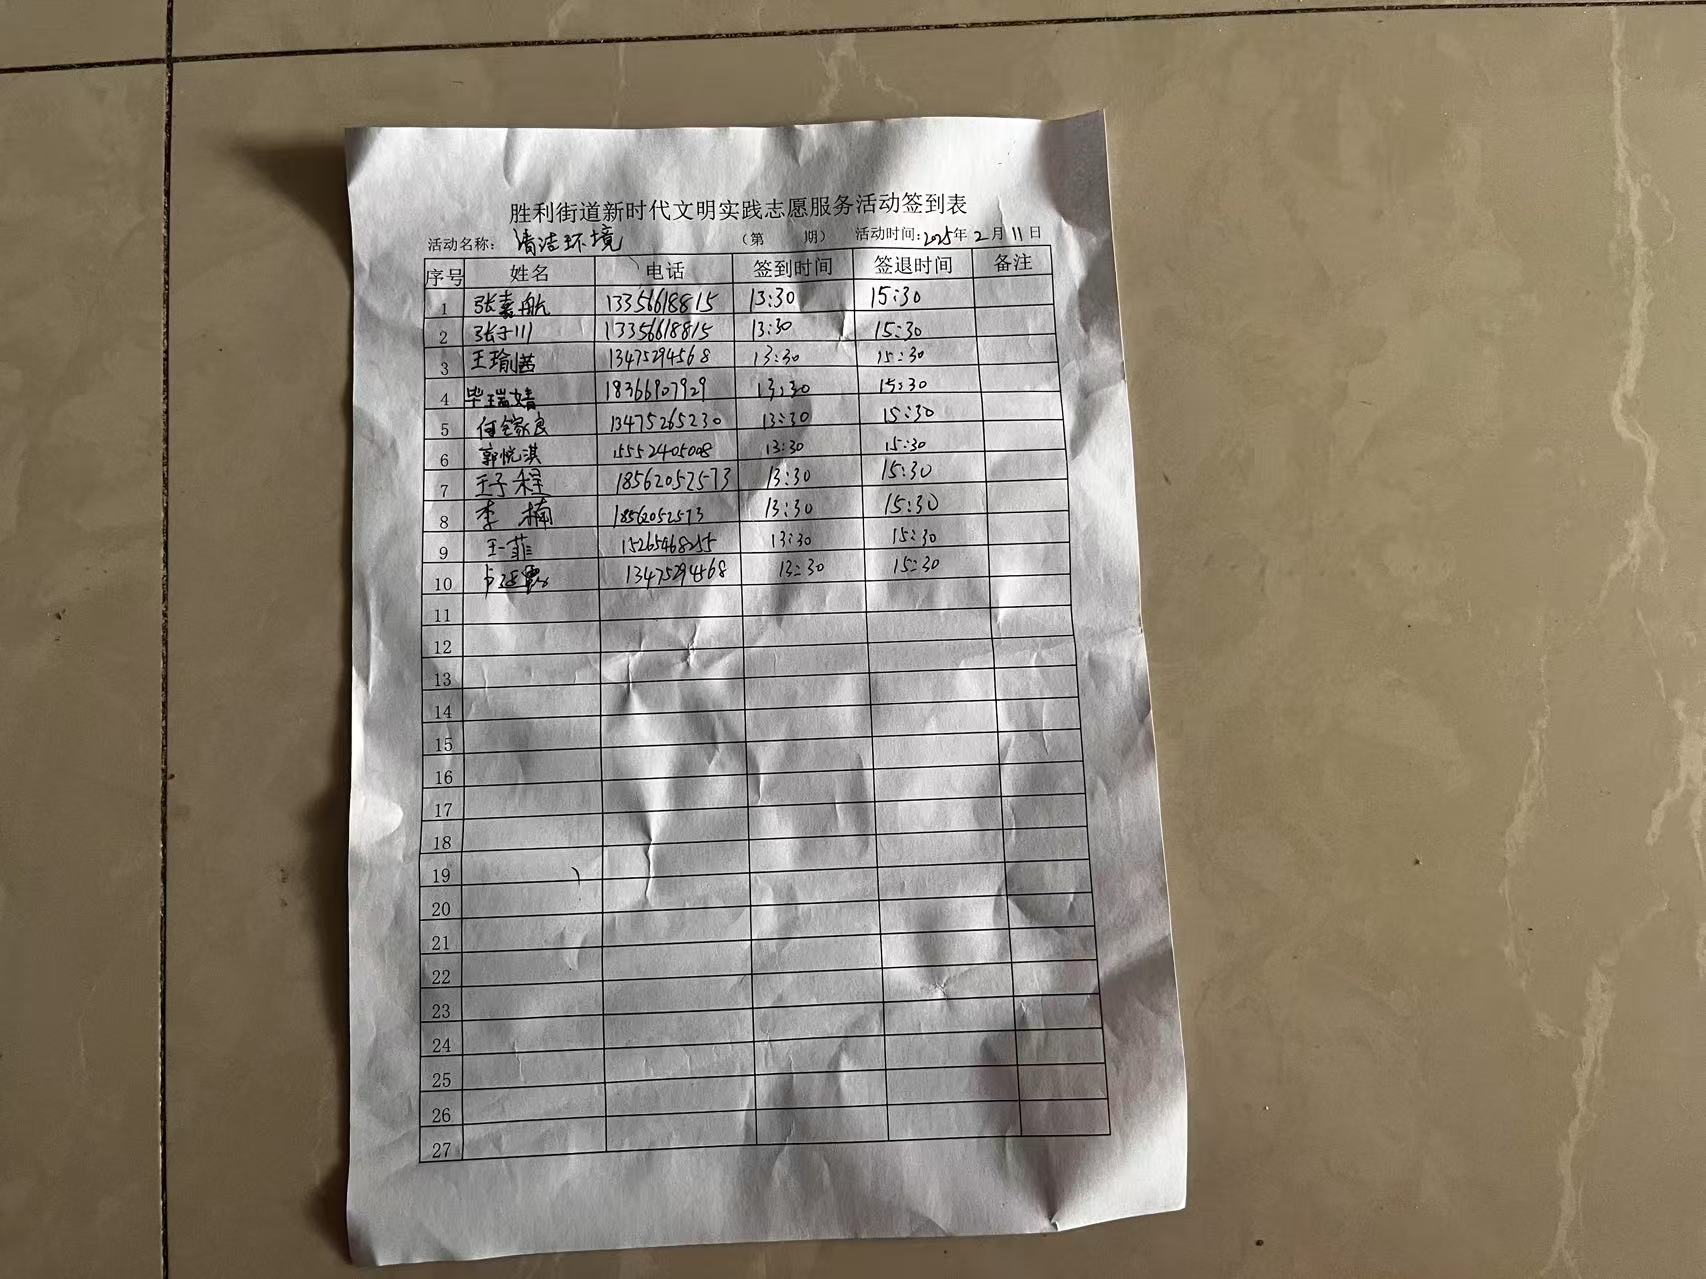 胜利街道新时代文明实践志愿服务活动签到表
活动名称: 清洁环境 (第 期) 活动时间:2025年2月11日
序号 姓名 电话 签到时间 签退时间 备注
1 张嘉航 13356618815 13:30 15:30
2 张于川 13356618815 13:30 15:30
3 王瑜茜 13475294568 13:30 15:30
4 毕瑞婧 18366907929 13:30 15:30
5 何锭良 13475265230 13:30 15:30
6 郭悦淇 15552405008 13:30 15:30
7 王子程 18562052573 13:30 15:30
8 李楠 18562052573 13:30 15:30
9 王一菲 15265468255 13:30 15:30
10 卢延霞 13475294568 13:30 15:30
11
12
13
14
15
16
17
18
19
20
21
22
23
24
25
26
27